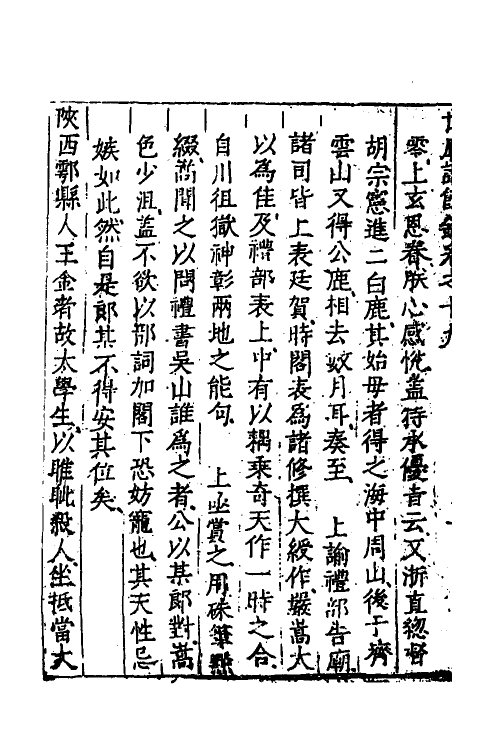 卷之十九
零上玄恩眷朕心感悅盖特承優旨云又浙直總督
胡宗憲進二白鹿其始母者得之海中周山後于齊
雲山又得公鹿相去数月耳奏至　上諭禮部告廟
諸司皆上表廷賀時閣表為諸修撰大綬作嚴嵩大
以為佳及禮部表上中有以耦乘奇天作一時之合
自川徂嶽神彰兩地之能句　上亟賞之用硃筆點
綴嵩聞之以問禮書吳山誰為之者公以某郎對嵩
色少沮盖不欲以部詞加閣下恐妨寵也其天性忌
嫉如此然自是郎某不得安其位矣
陝西鄠縣人王金者故太學生以睢眦殺人坐抵當大